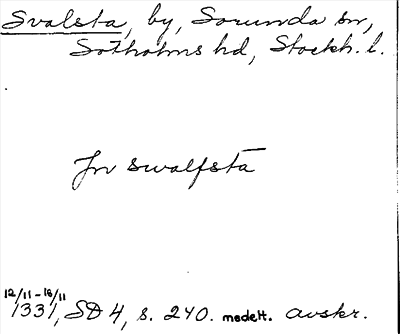 Svalsta, by, Sorunda sn,
Sotholms hd, Stockh. l.
Jn swalfstā
12/11-18/11
1331, SD 4, s. 240. medelt. avskr.